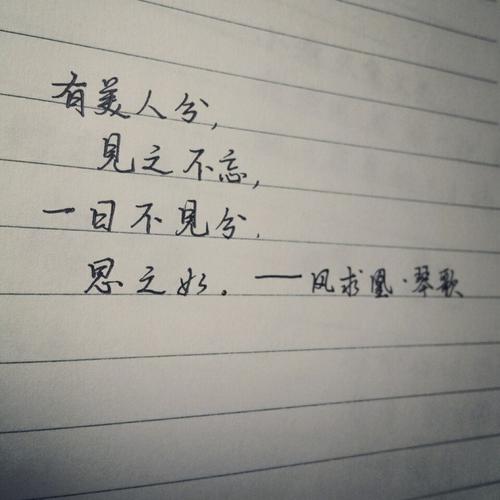 有美人兮,
見之不忘,
一日不見兮.
思之如. ——凤求凰·琴歌